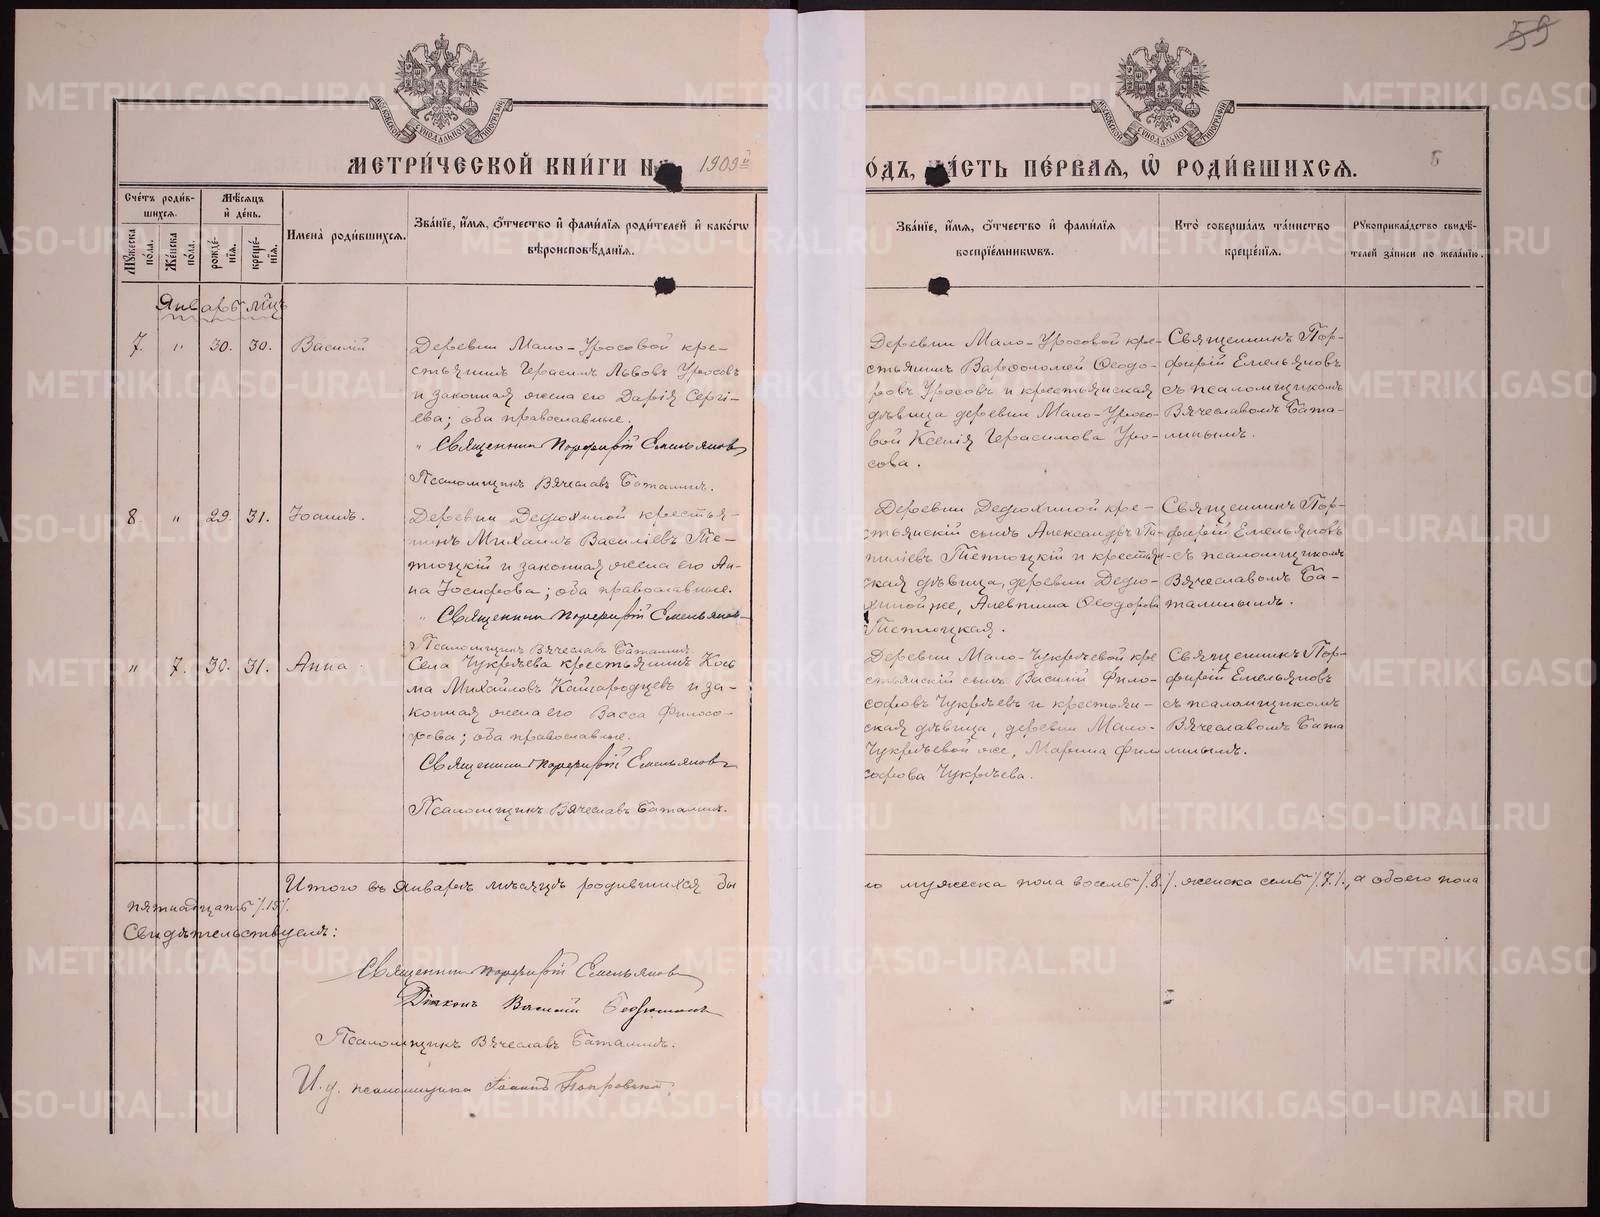 59
МОСКОВСКОЙ СѴНОДАЛЬНОЙ ТИПОГРАФІИ
МОСКОВСКОЙ СѴНОДАЛЬНОЙ ТИПОГРАФІИ
МЕТРИ́ЧЕСКОЙ КНИ́ГИ 1909й
О́ДЪ, ЧА́СТЬ ПЕ́РВАЯ, Ѽ РОДИ́ВШИХСЯ. 5
Сче́тъ роди́в-
шихся.
Мꙋ́жеска по́ла.
Же́нска по́ла.
Мѣ́сяцъ
и҆ де́нь.
рожде́-
нїя.
креще́-
нїя.
И҆мена̀ роди́вшихся.
Зва́нїе, и҆́мя, ѻ҆́тчество и҆ фами́лїя роди́телей и҆ како́гѡ
вѣроисповѣ́данїя.
Зва́нїе, и҆́мя, ѻ҆́тчество и҆ фами́лїя
воспрїе́мникѡвъ.
Кто̀ соверша́лъ та́инство
креще́нїя.
Рꙋкоприкла́дство свидѣ́-
телей за́писи по жела́нїю.
Январь мц̃ъ
7. " 30. 30. Василій
Деревни Мало-Уросовой кре-
стьянинъ Герасимъ Львовъ Уросовъ
и законная жена его Дарія Сергі-
ева; оба православные.
Священник Порфирій Емельянов
Псаломщикъ Вячеславъ Баталинъ.
Деревни Мало-Уросовой кре-
стьянинъ Варфоломей Ѳеодо-
ровъ Уросовъ и крестьянская
дѣвица деревни Мало-Уросо-
вой Ксенія Герасимова Уро-
сова.
Священникъ Пор-
фирій Емельяновъ
съ псаломщикомъ
Вячеславомъ Бата-
линымъ.
8. " 29. 31. Іоаннъ.
Деревни Дедюхиной крестья-
нинъ Михаилъ Василіевъ
и законная жена его Ан-
на Іосифова; оба православные.
Священник Порфирій Емельянов
Псаломщикъ Вячеславъ Баталинъ.
Деревни Дедюхиной кре-
стьянскій сынъ Александръ
и крестьян-
ская дѣвица, деревни Дедю-
хиной же, Алевтина Ѳеодорова
Священникъ Пор-
фирій Емельяновъ
съ псаломщикомъ
Вячеславомъ Ба-
талинымъ.
" 7. 30. 31. Анна
Села Чукрѣева крестьянинъ Кось
ма Михайловъ Кайгородцевъ и за-
конная жена его Васса Филосо-
фова; оба православные.
Священник Порфирій Емельянов
Псаломщикъ Вячеславъ Баталинъ.
Деревни Мало-Чукрѣевой кре
стьянскій сынъ Василій Фило-
софовъ Чукрѣевъ и крестьян-
ская дѣвица, деревни Мало-
Чукрѣевой же, Марина Фило
софова Чукрѣева.
Священникъ Пор-
фирій Емельяновъ
съ псаломщикомъ
Вячеславомъ Бата
линымъ.
Итого въ Январѣ мѣсяцѣ родившихся бы
ло мужеска пола восемь /.8./. женска семь /.7./., а обоего пола
пятнадцать /.15/.
Свидѣтельствуемъ:
Священник Порфирій Емельянов
Діаконъ Василій
Псаломщикъ Вячеславъ Баталинъ.
И. д. псаломщика Іоаннъ